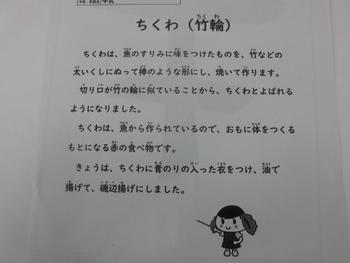 ちくわ（竹輪）
ちくわは、魚のすりみに味をつけたものを、竹などの
太いくしにぬって棒のような形にし、焼いて作ります。
切り口が竹の輪に似ていることから、ちくわとよばれる
ようになりました。
ちくわは、魚から作られているので、おもに体をつくる
もとになる赤の食べ物です。
きょうは、ちくわに青のりの入った衣をつけ、油で
揚げて、磯辺揚げにしました。